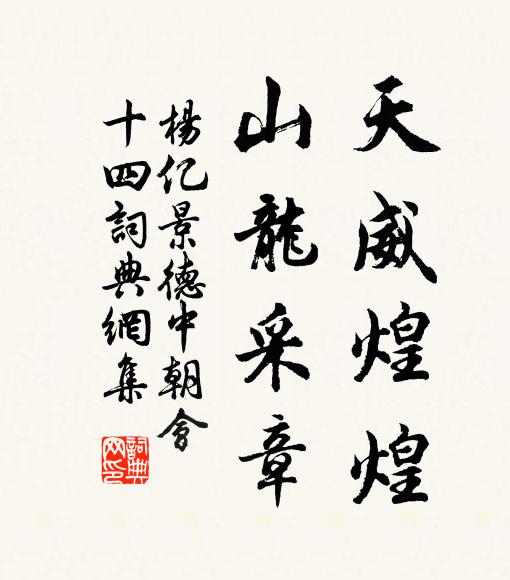 天威煌煌
山龍采章
楊亿景德中朝會
十四詞典網集
詞典網印